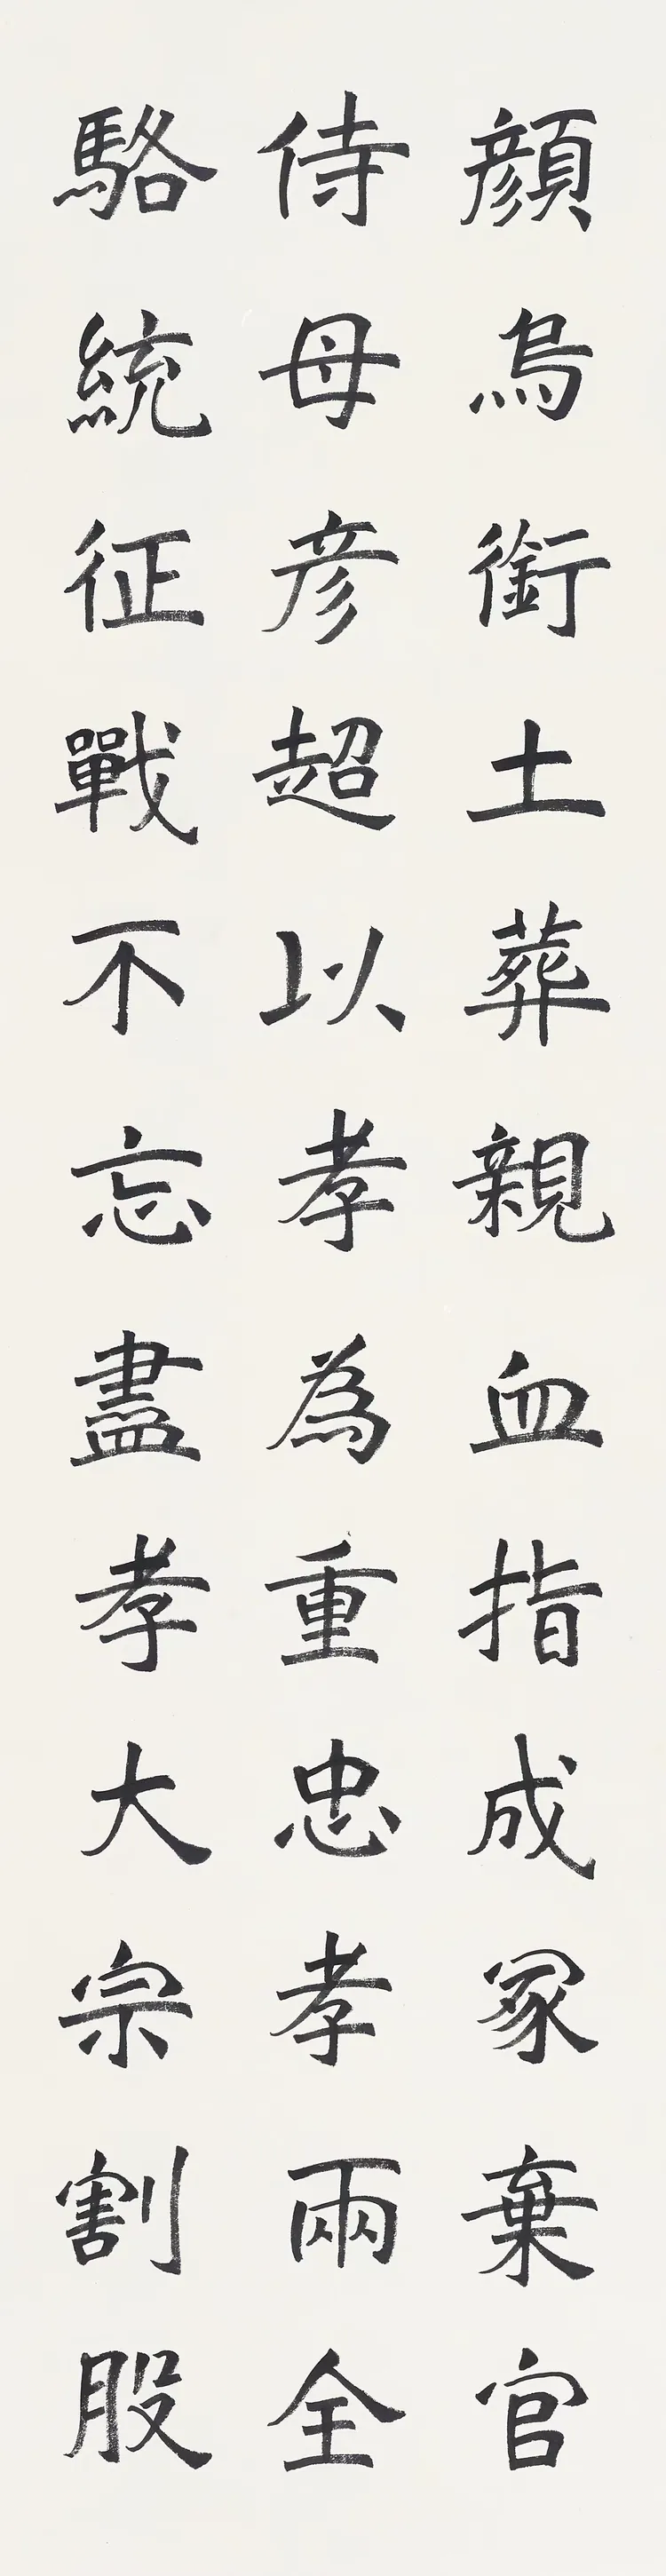 顔烏銜土葬親血指成冢棄官
侍母彦超以孝為重忠孝兩全
駱統征戰不忘盡孝大宗割股